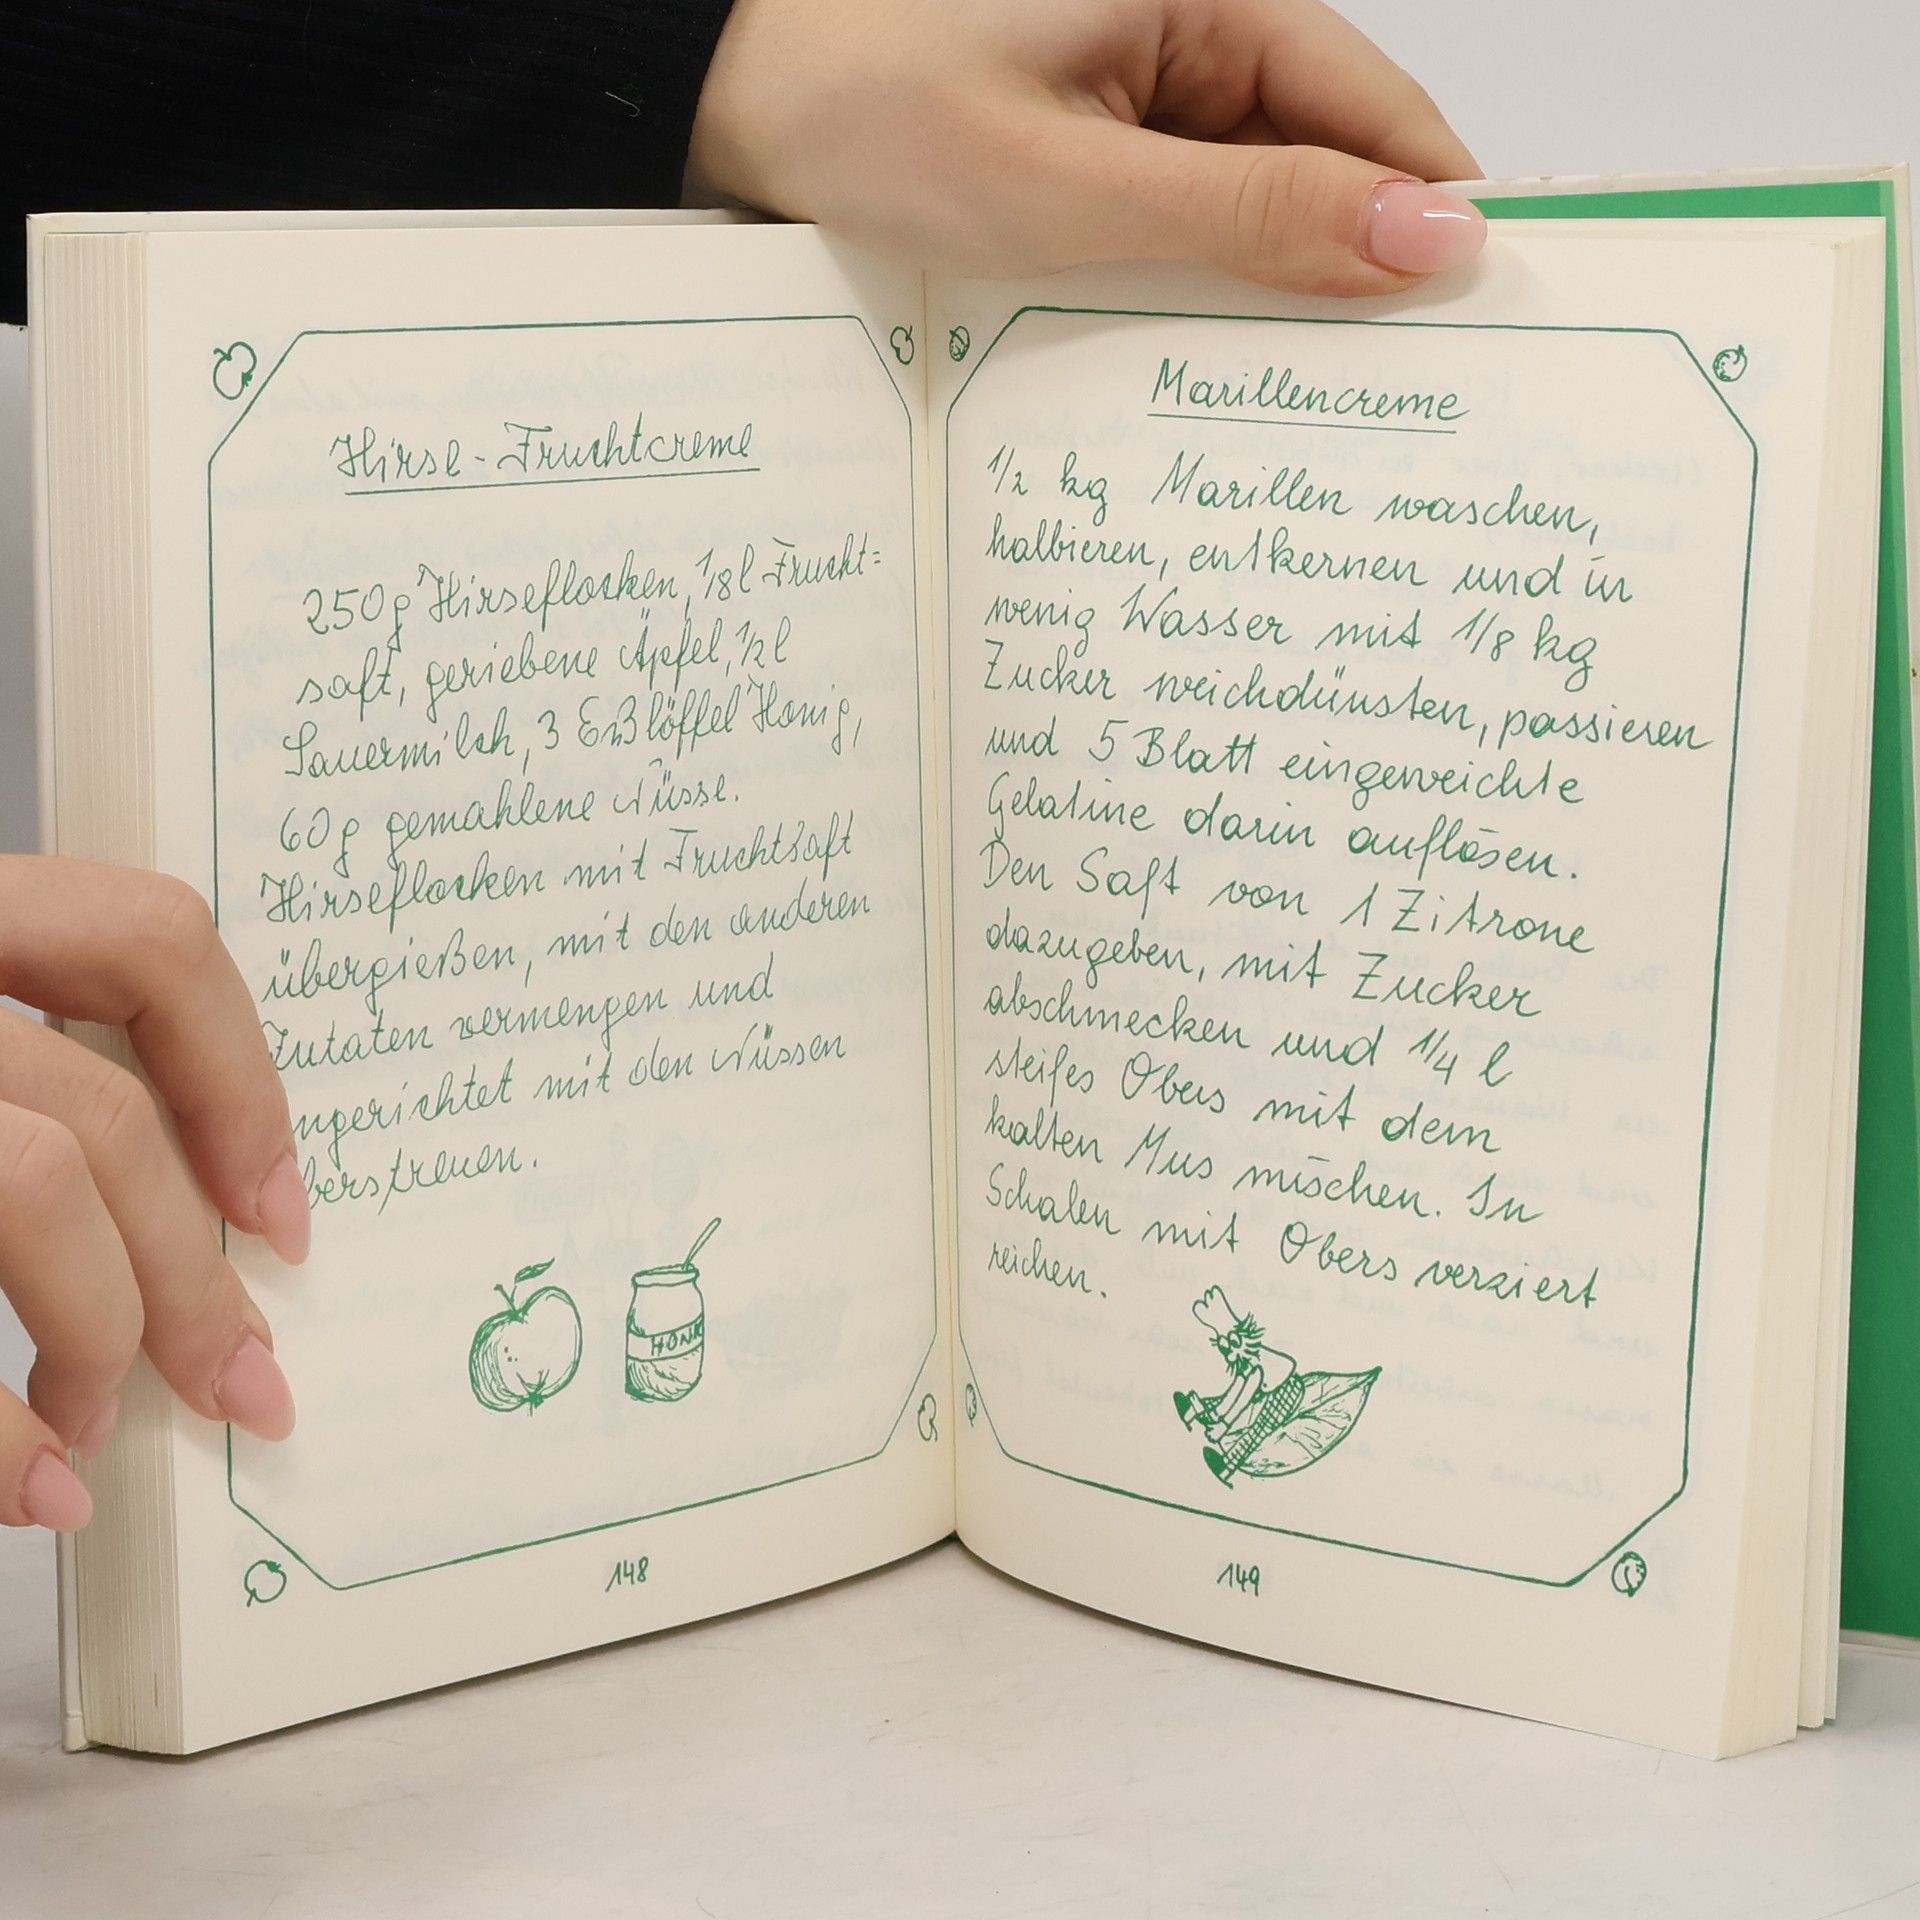 Hirse-Fruchtcreme
250g Hirseflocken, 1/8 l Frucht=
saft, geriebene Äpfel, 1/2 l
Sauermilch, 3 Eßlöffel Honig,
60g gemahlene Nüsse.
Hirseflocken mit Fruchtsaft
übergießen, mit den anderen
Zutaten vermengen und
ngerichtet mit den Nüssen
berstreuen.
HONI
148
Marillencreme
1/2 kg Marillen waschen,
halbieren, entkernen und in
wenig Wasser mit 1/8 kg
Zucker weichdünsten, passieren
und 5 Blatt eingeweichte
Gelatine darin auflösen.
Den Saft von 1 Zitrone
dazugeben, mit Zucker
abschmecken und 1/4 l
steifes Obers mit dem
kalten Mus mischen. In
Schalen mit Obers verziert
reichen.
149